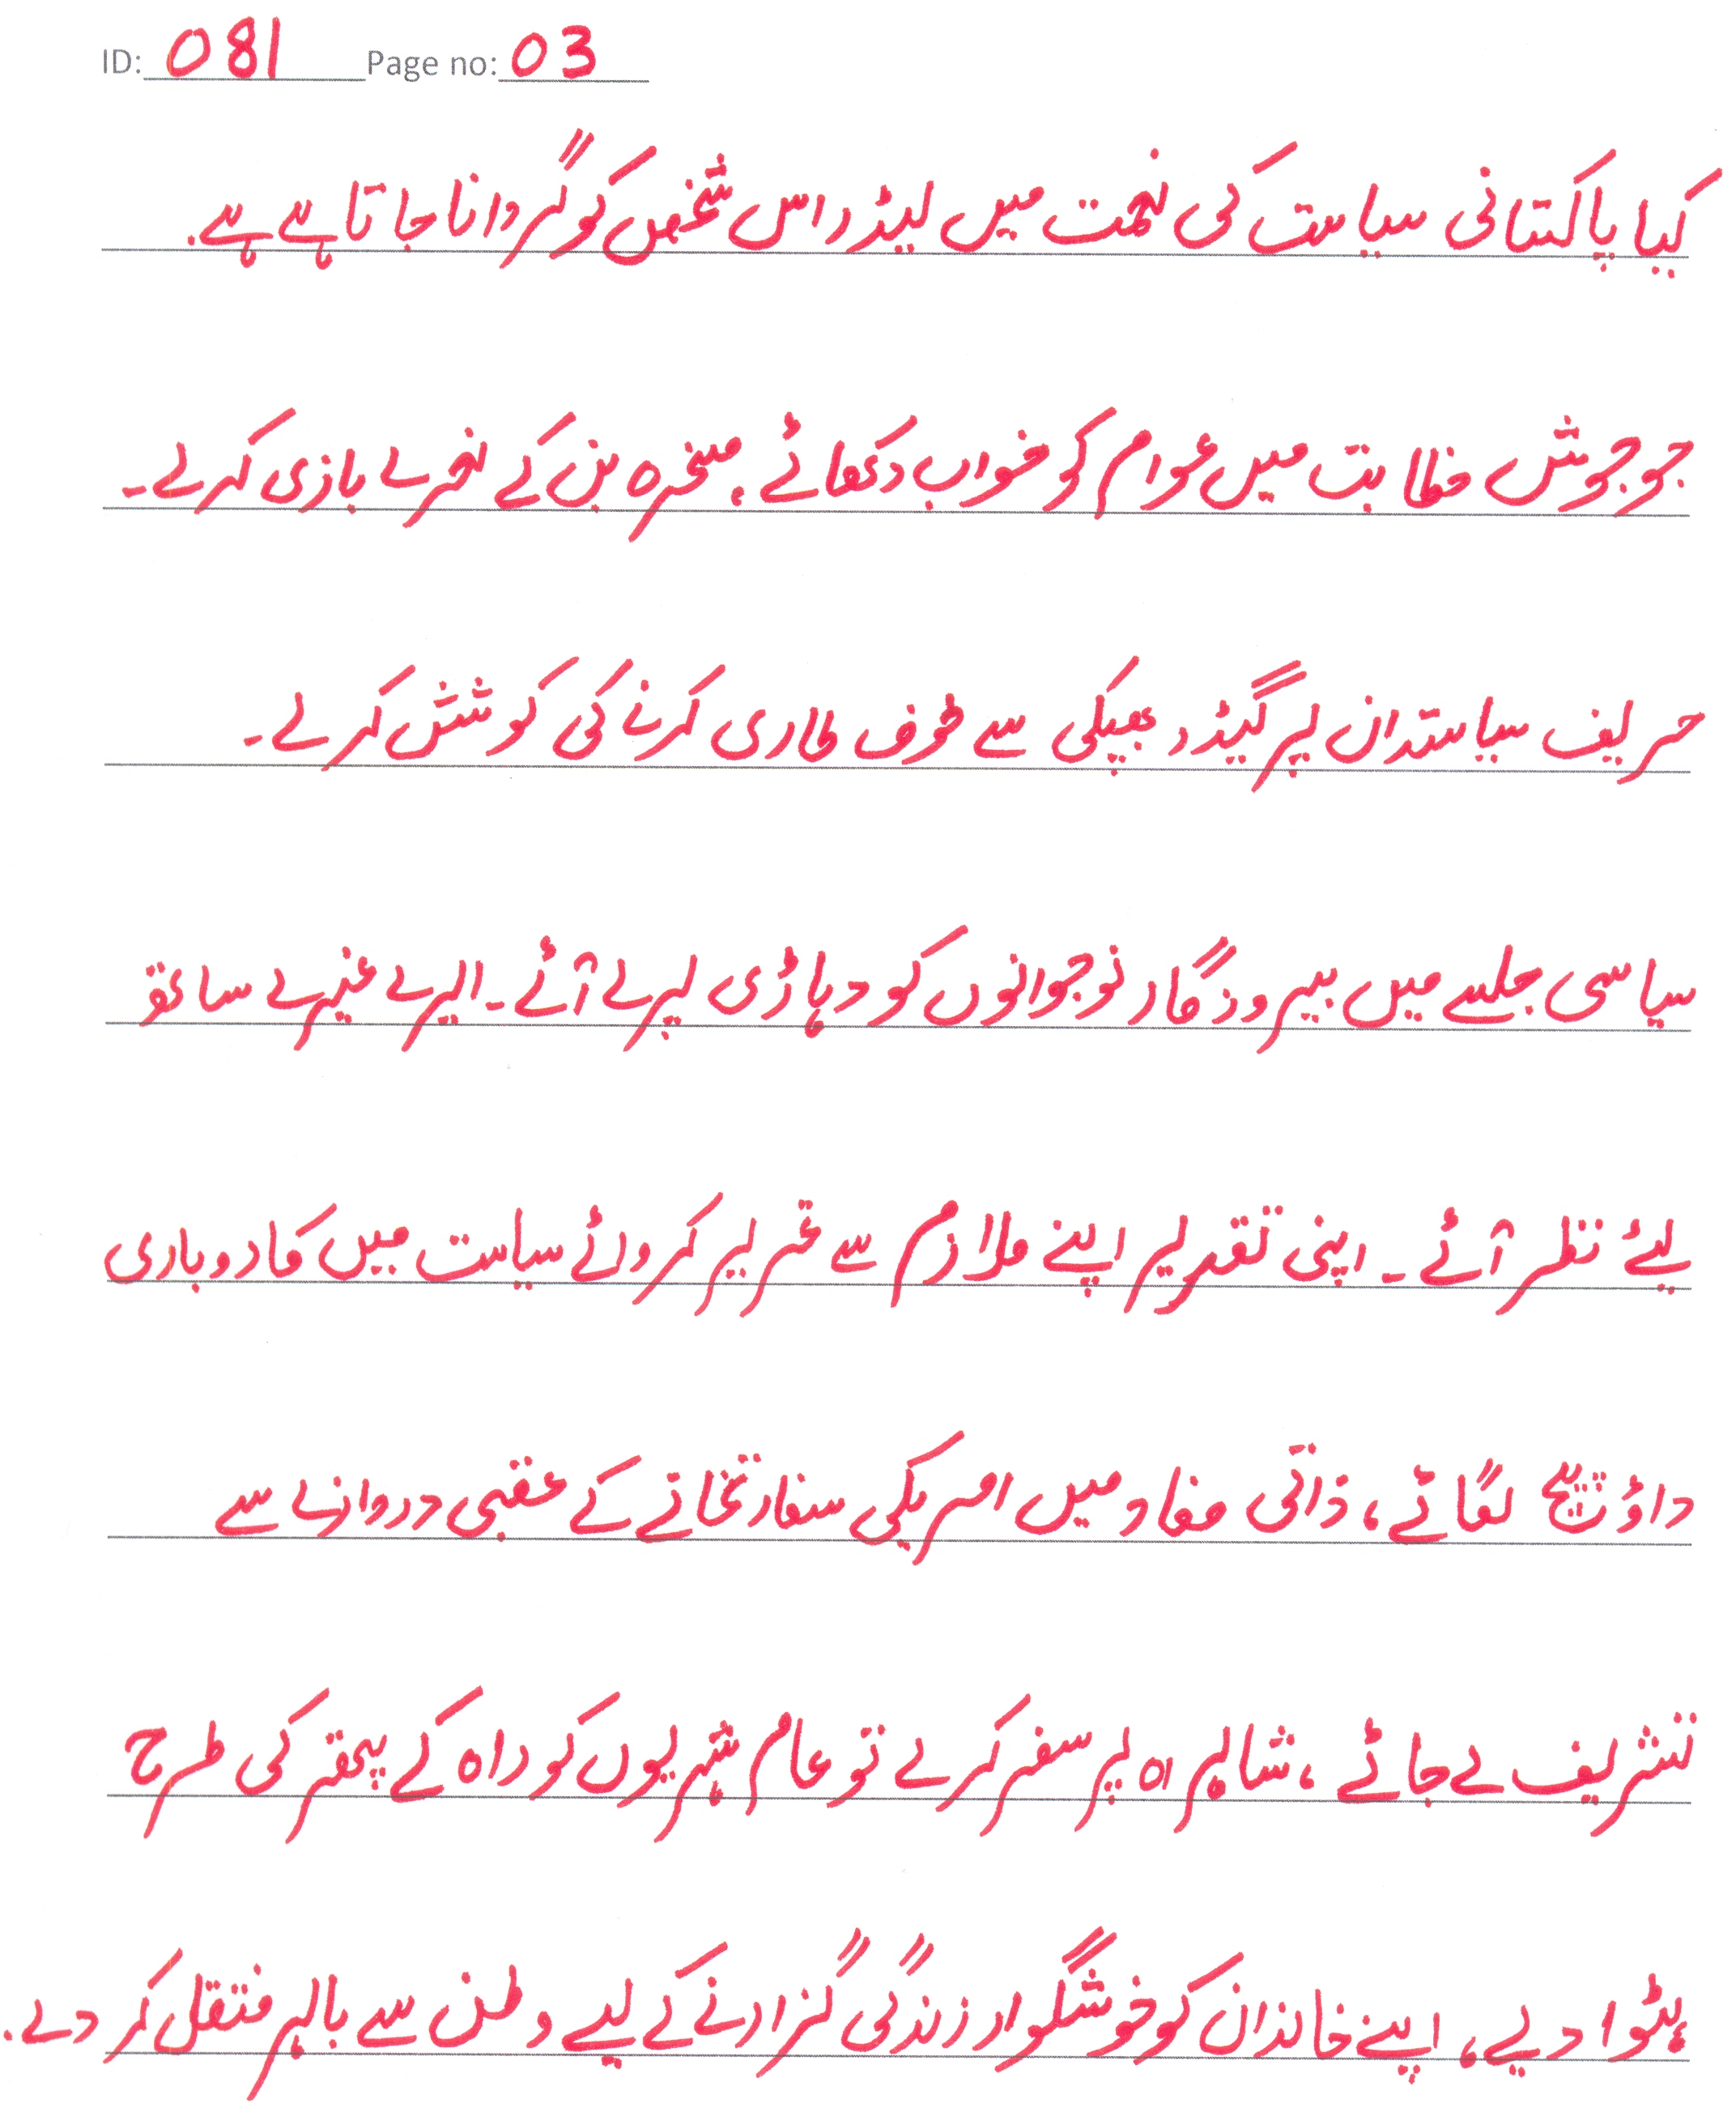 ID: 081 Page no: 03
کیا پاکستانی سیاست کی لغت میں لیڈر اس شخص کو گردانا جاتا ہے ہے.
جو جوش خطابت میں عوام کو خواب دکھائے، مسخرہ پن کے نخرے بازی کرے۔
حریف سیاستدان پر گیڈر بھبکی سے خوف طاری کرنے کی کوشش کرے۔
سیاسی جلسے میں بیروزگار نوجوانوں کو دہاڑی پر لے آئے۔ ایرے غیرے ساتھ
لیے نظر آئے۔ اپنی تقریر اپنے ملازم سے تحریر کروائے سیاست میں کاروباری
داؤ پیچ لگائے، ذاتی مفاد میں امریکی سفارتخانے کے عقبی دروازے سے
تشریف لے جائے، شاہراہ پر سفر کرے تو عام شہریوں کو راہ کے پتھر کی طرح
ہٹوا دیے، اپنے خاندان کو خوشگوار زندگی گزارنے کے لیے وطن سے باہر منتقل کر دے.